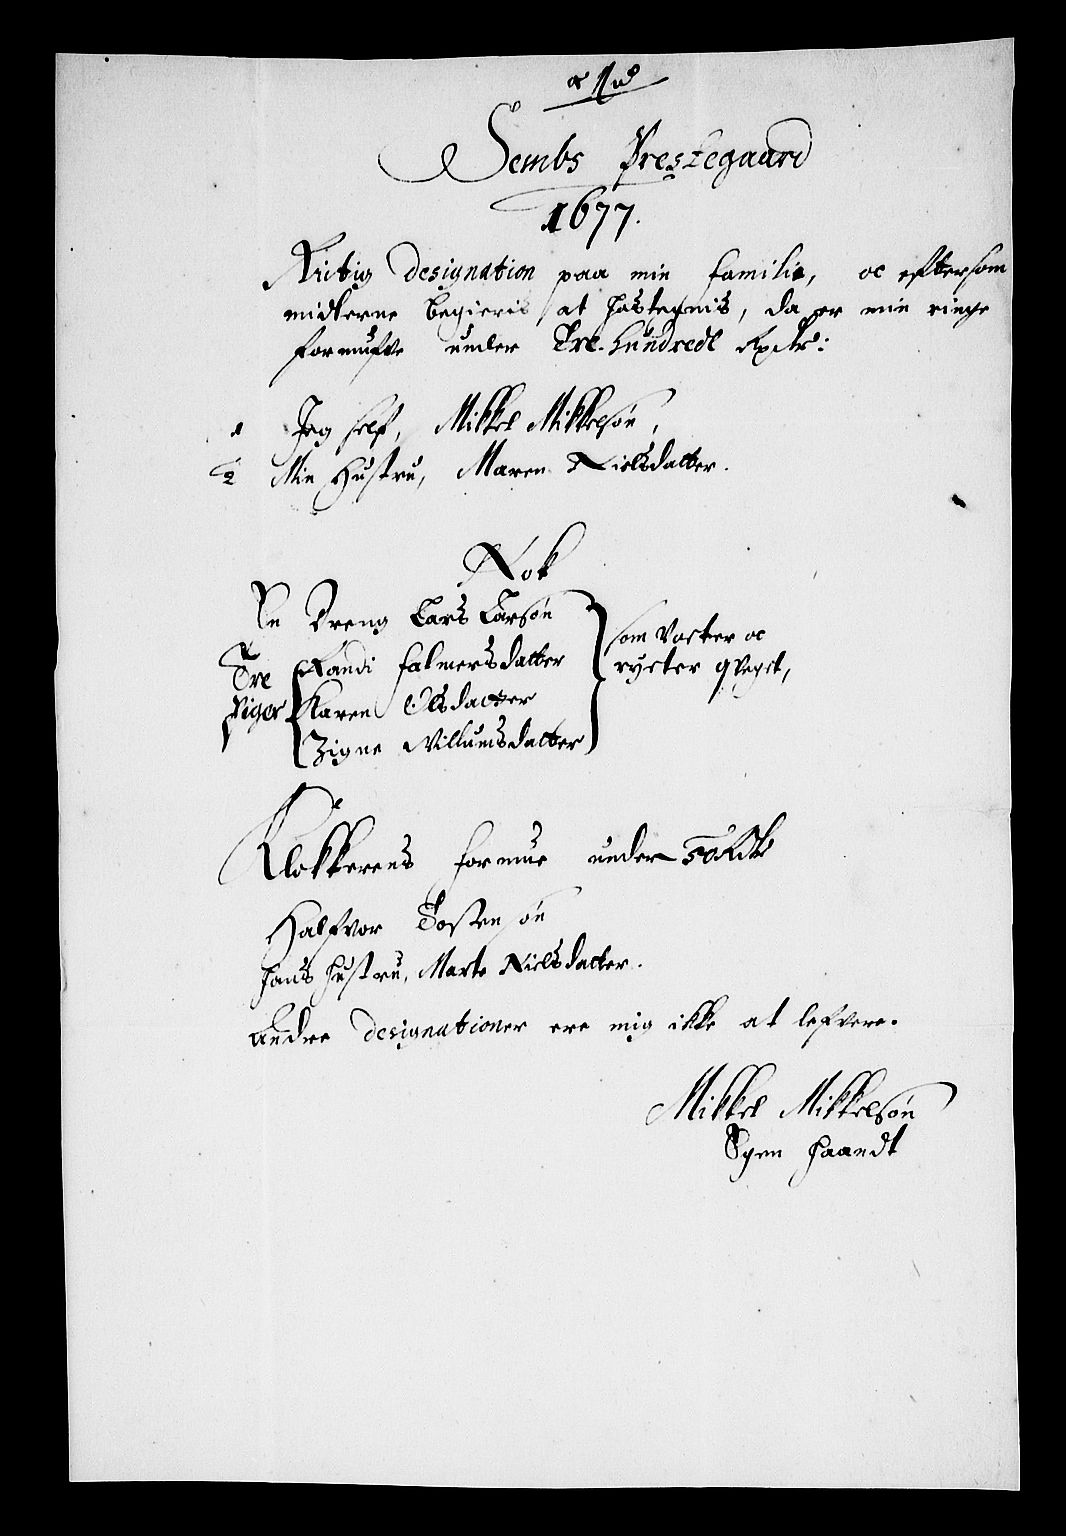 Sembs Prestegaard
1677.
Rictig designation paa min familie, oc eftersom
midlerne begieris at hostegnis, da er min ringe
formufve under Tre hundrede Rixdlr:
1 Jeg self, Mikkel Mikkelsøn,
2 Min Hustru, Maren Nielsdatter.
Nok
En Dreng Lars Larsøn
Tre Randi Falmersdatter
Piger Karen Olsdatter
Zigne Willumsdatter
som Vocter oc
rycter qveget,
Klokkerens formue under 50 Rdlr
Halfvor Tostensøn
hans hustru, Marte Nielsdatter.
Andre designationer ere mig ikke at lefvere.
Mikkel Mikkelsøn
Egen haandt